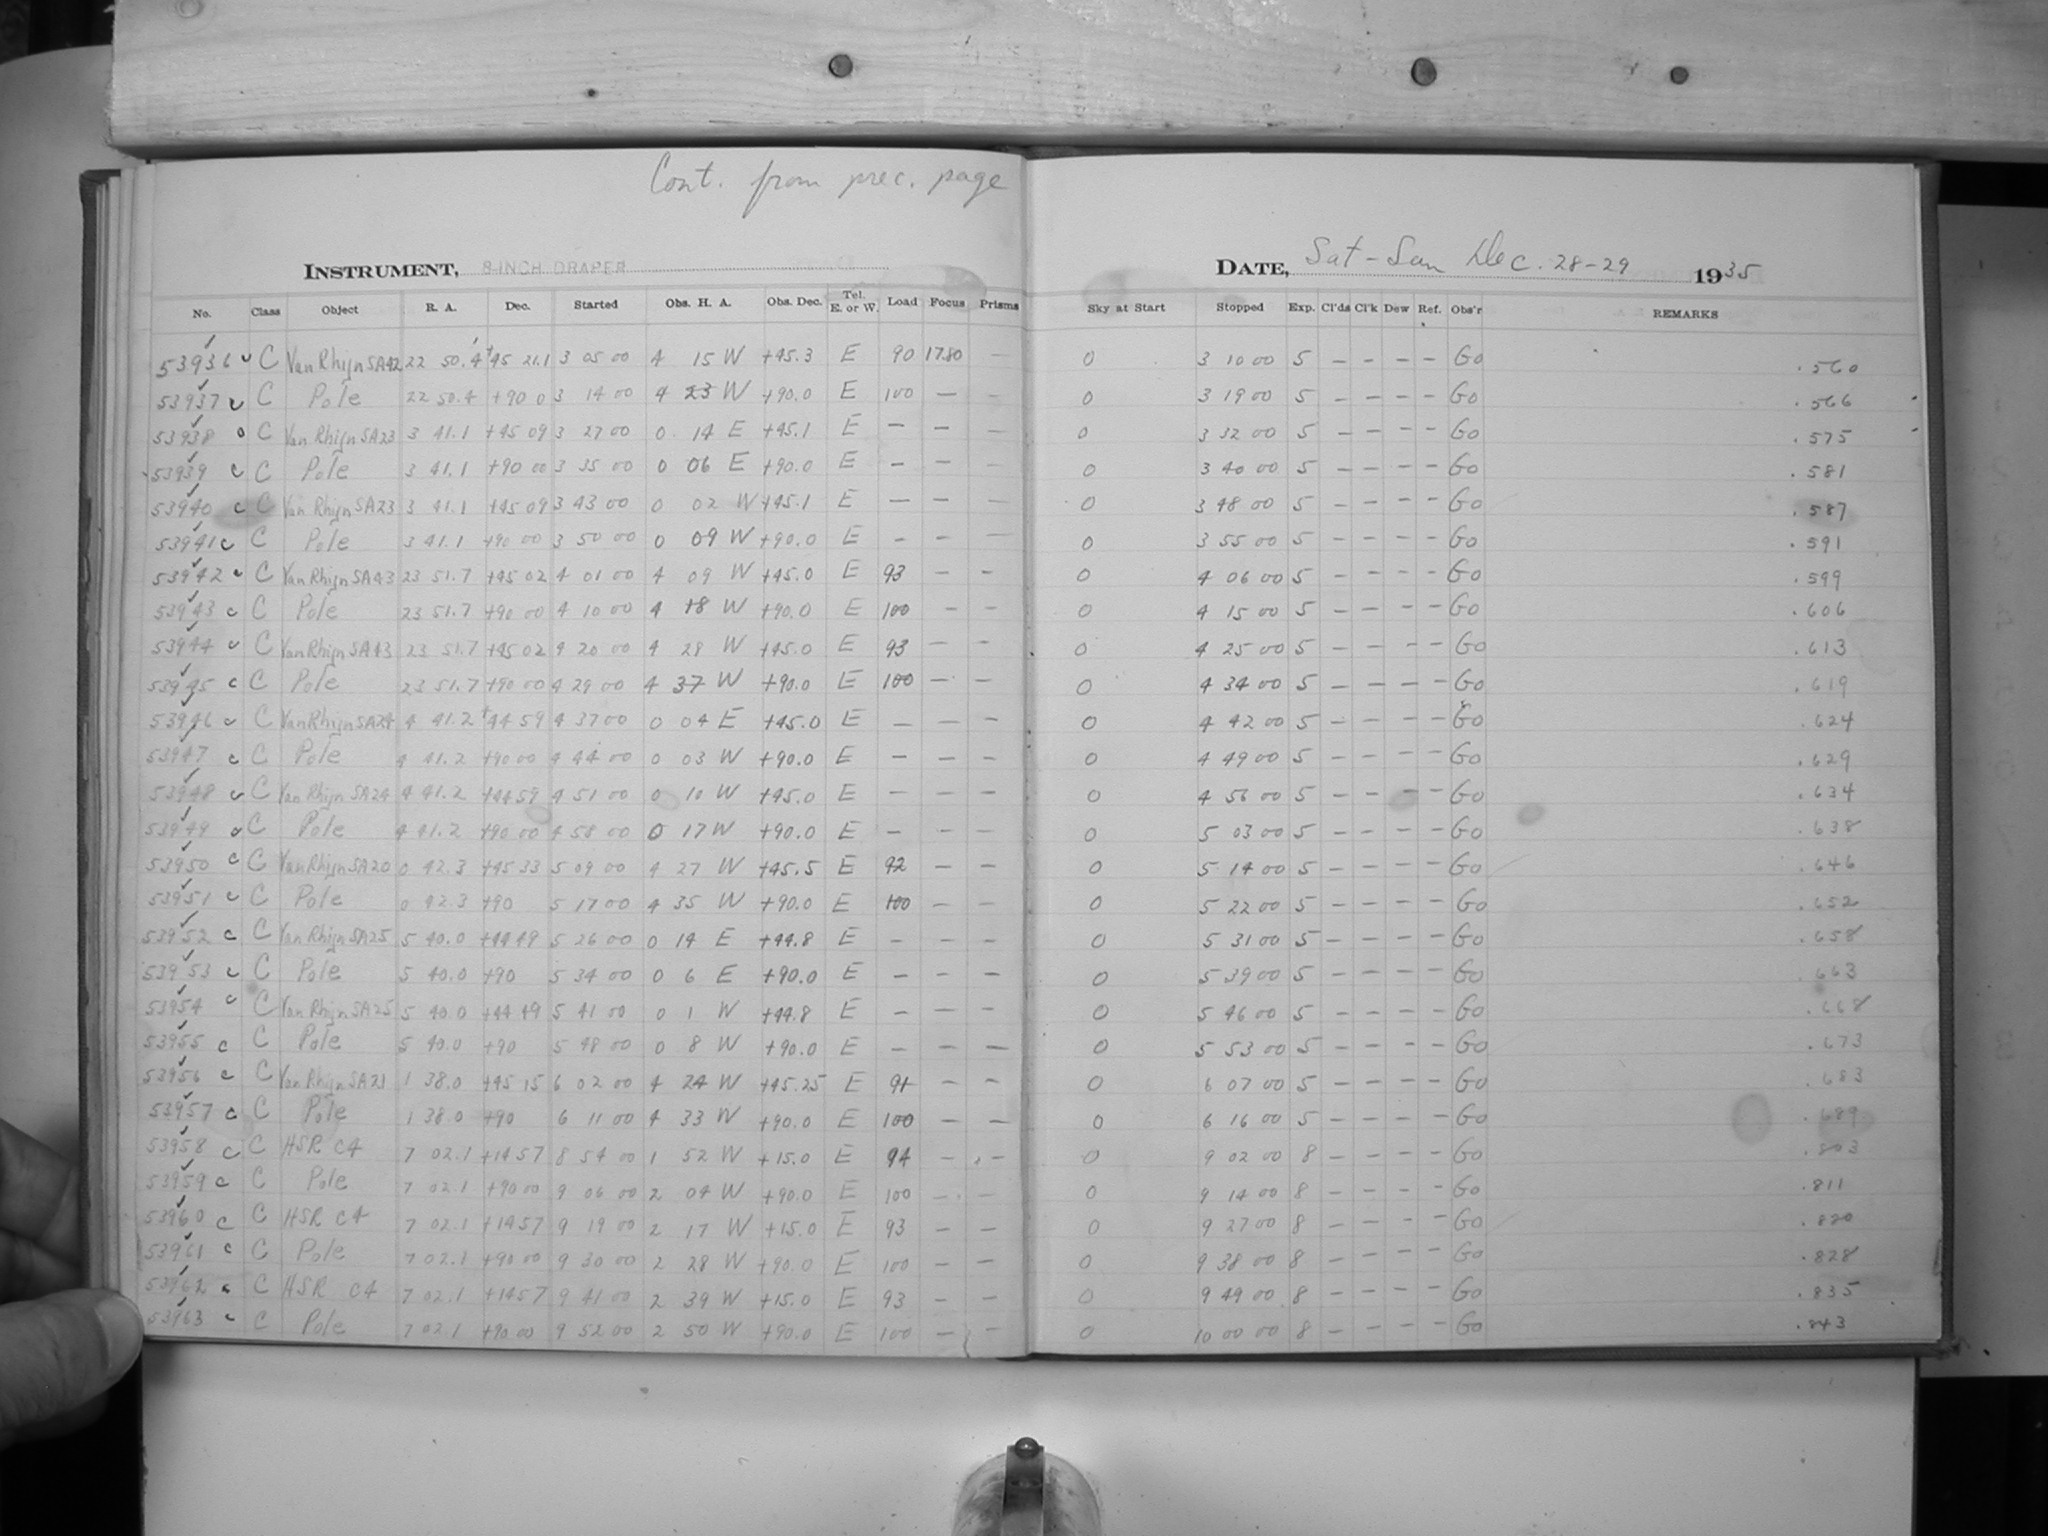 Cont. from prec. page
INSTRUMENT, 8-INCH DRAPER DATE, Sat-Sun Dec. 28-29 1935
No. Class Object R. A. Dec. Started Obs. H. A. Obs. Dec. Tel. E. or W. Load Focus Prisms Sky at Start Stopped Exp. Cl'ds Cl'k Dew Ref. Obs'r REMARKS
53936 C Van Rhijn SA42 22 50.4 +45 21.1 3 05 00 4 15 W +45.3 E 90 17.80 — 0 3 10 00 5 — — — — Go .560
53937 C Pole 22 50.4 +90 0 3 14 00 4 23 W +90.0 E 100 — — 0 3 19 00 5 — — — — Go .566
53938 C Van Rhijn SA23 3 41.1 +45 09 3 27 00 0 14 E +45.1 E — — — 0 3 32 00 5 — — — — Go .575
53939 C Pole 3 41.1 +90 00 3 35 00 0 06 E +90.0 E — — — 0 3 40 00 5 — — — — Go .581
53940 C Van Rhijn SA23 3 41.1 +45 09 3 43 00 0 02 W +45.1 E — — — 0 3 48 00 5 — — — — Go .587
53941 C Pole 3 41.1 +90 00 3 50 00 0 09 W +90.0 E — — — 0 3 55 00 5 — — — — Go .591
53942 C Van Rhijn SA43 23 51.7 +45 02 4 01 00 4 09 W +45.0 E 93 — — 0 4 06 00 5 — — — — Go .599
53943 C Pole 23 51.7 +90 00 4 10 00 4 18 W +90.0 E 100 — — 0 4 15 00 5 — — — — Go .606
53944 C Van Rhijn SA43 23 51.7 +45 02 4 20 00 4 28 W +45.0 E 93 — — 0 4 25 00 5 — — — — Go .613
53945 C Pole 23 51.7 +90 00 4 29 00 4 37 W +90.0 E 100 — — 0 4 34 00 5 — — — — Go .619
53946 C Van Rhijn SA24 4 41.2 +44 59 4 37 00 0 04 E +45.0 E — — — 0 4 42 00 5 — — — — Go .624
53947 C Pole 4 41.2 +90 00 4 44 00 0 03 W +90.0 E — — — 0 4 49 00 5 — — — — Go .629
53948 C Van Rhijn SA24 4 41.2 +44 59 4 51 00 0 10 W +45.0 E — — — 0 4 56 00 5 — — — — Go .634
53949 C Pole 4 41.2 +90 00 4 58 00 0 17 W +90.0 E — — — 0 5 03 00 5 — — — — Go .638
53950 C Van Rhijn SA20 0 42.3 +45 33 5 09 00 4 27 W +45.5 E 92 — — 0 5 14 00 5 — — — — Go .646
53951 C Pole 0 42.3 +90 5 17 00 4 35 W +90.0 E 100 — — 0 5 22 00 5 — — — — Go .652
53952 C Van Rhijn SA25 5 40.0 +44 49 5 26 00 0 14 E +44.8 E — — — 0 5 31 00 5 — — — — Go .658
53953 C Pole 5 40.0 +90 5 34 00 0 6 E +90.0 E — — — 0 5 39 00 5 — — — — Go .663
53954 C Van Rhijn SA25 5 40.0 +44 49 5 41 00 0 1 W +44.8 E — — — 0 5 46 00 5 — — — — Go .668
53955 C Pole 5 40.0 +90 5 48 00 0 8 W +90.0 E — — — 0 5 53 00 5 — — — — Go .673
53956 C Van Rhijn SA21 1 38.0 +45 15 6 02 00 4 24 W +45.25 E 91 — — 0 6 07 00 5 — — — — Go .683
53957 C Pole 1 38.0 +90 6 11 00 4 33 W +90.0 E 100 — — 0 6 16 00 5 — — — — Go .689
53958 C HSR C4 7 02.1 +14 57 8 54 00 1 52 W +15.0 E 94 — — 0 9 02 00 8 — — — — Go .803
53959 C Pole 7 02.1 +90 00 9 06 00 2 04 W +90.0 E 100 — — 0 9 14 00 8 — — — — Go .811
53960 C HSR C4 7 02.1 +14 57 9 19 00 2 17 W +15.0 E 93 — — 0 9 27 00 8 — — — — Go .820
53961 C Pole 7 02.1 +90 00 9 30 00 2 28 W +90.0 E 100 — — 0 9 38 00 8 — — — — Go .828
53962 C HSR C4 7 02.1 +14 57 9 41 00 2 39 W +15.0 E 93 — — 0 9 49 00 8 — — — — Go .835
53963 C Pole 7 02.1 +90 00 9 52 00 2 50 W +90.0 E 100 — — 0 10 00 00 8 — — — — Go .843